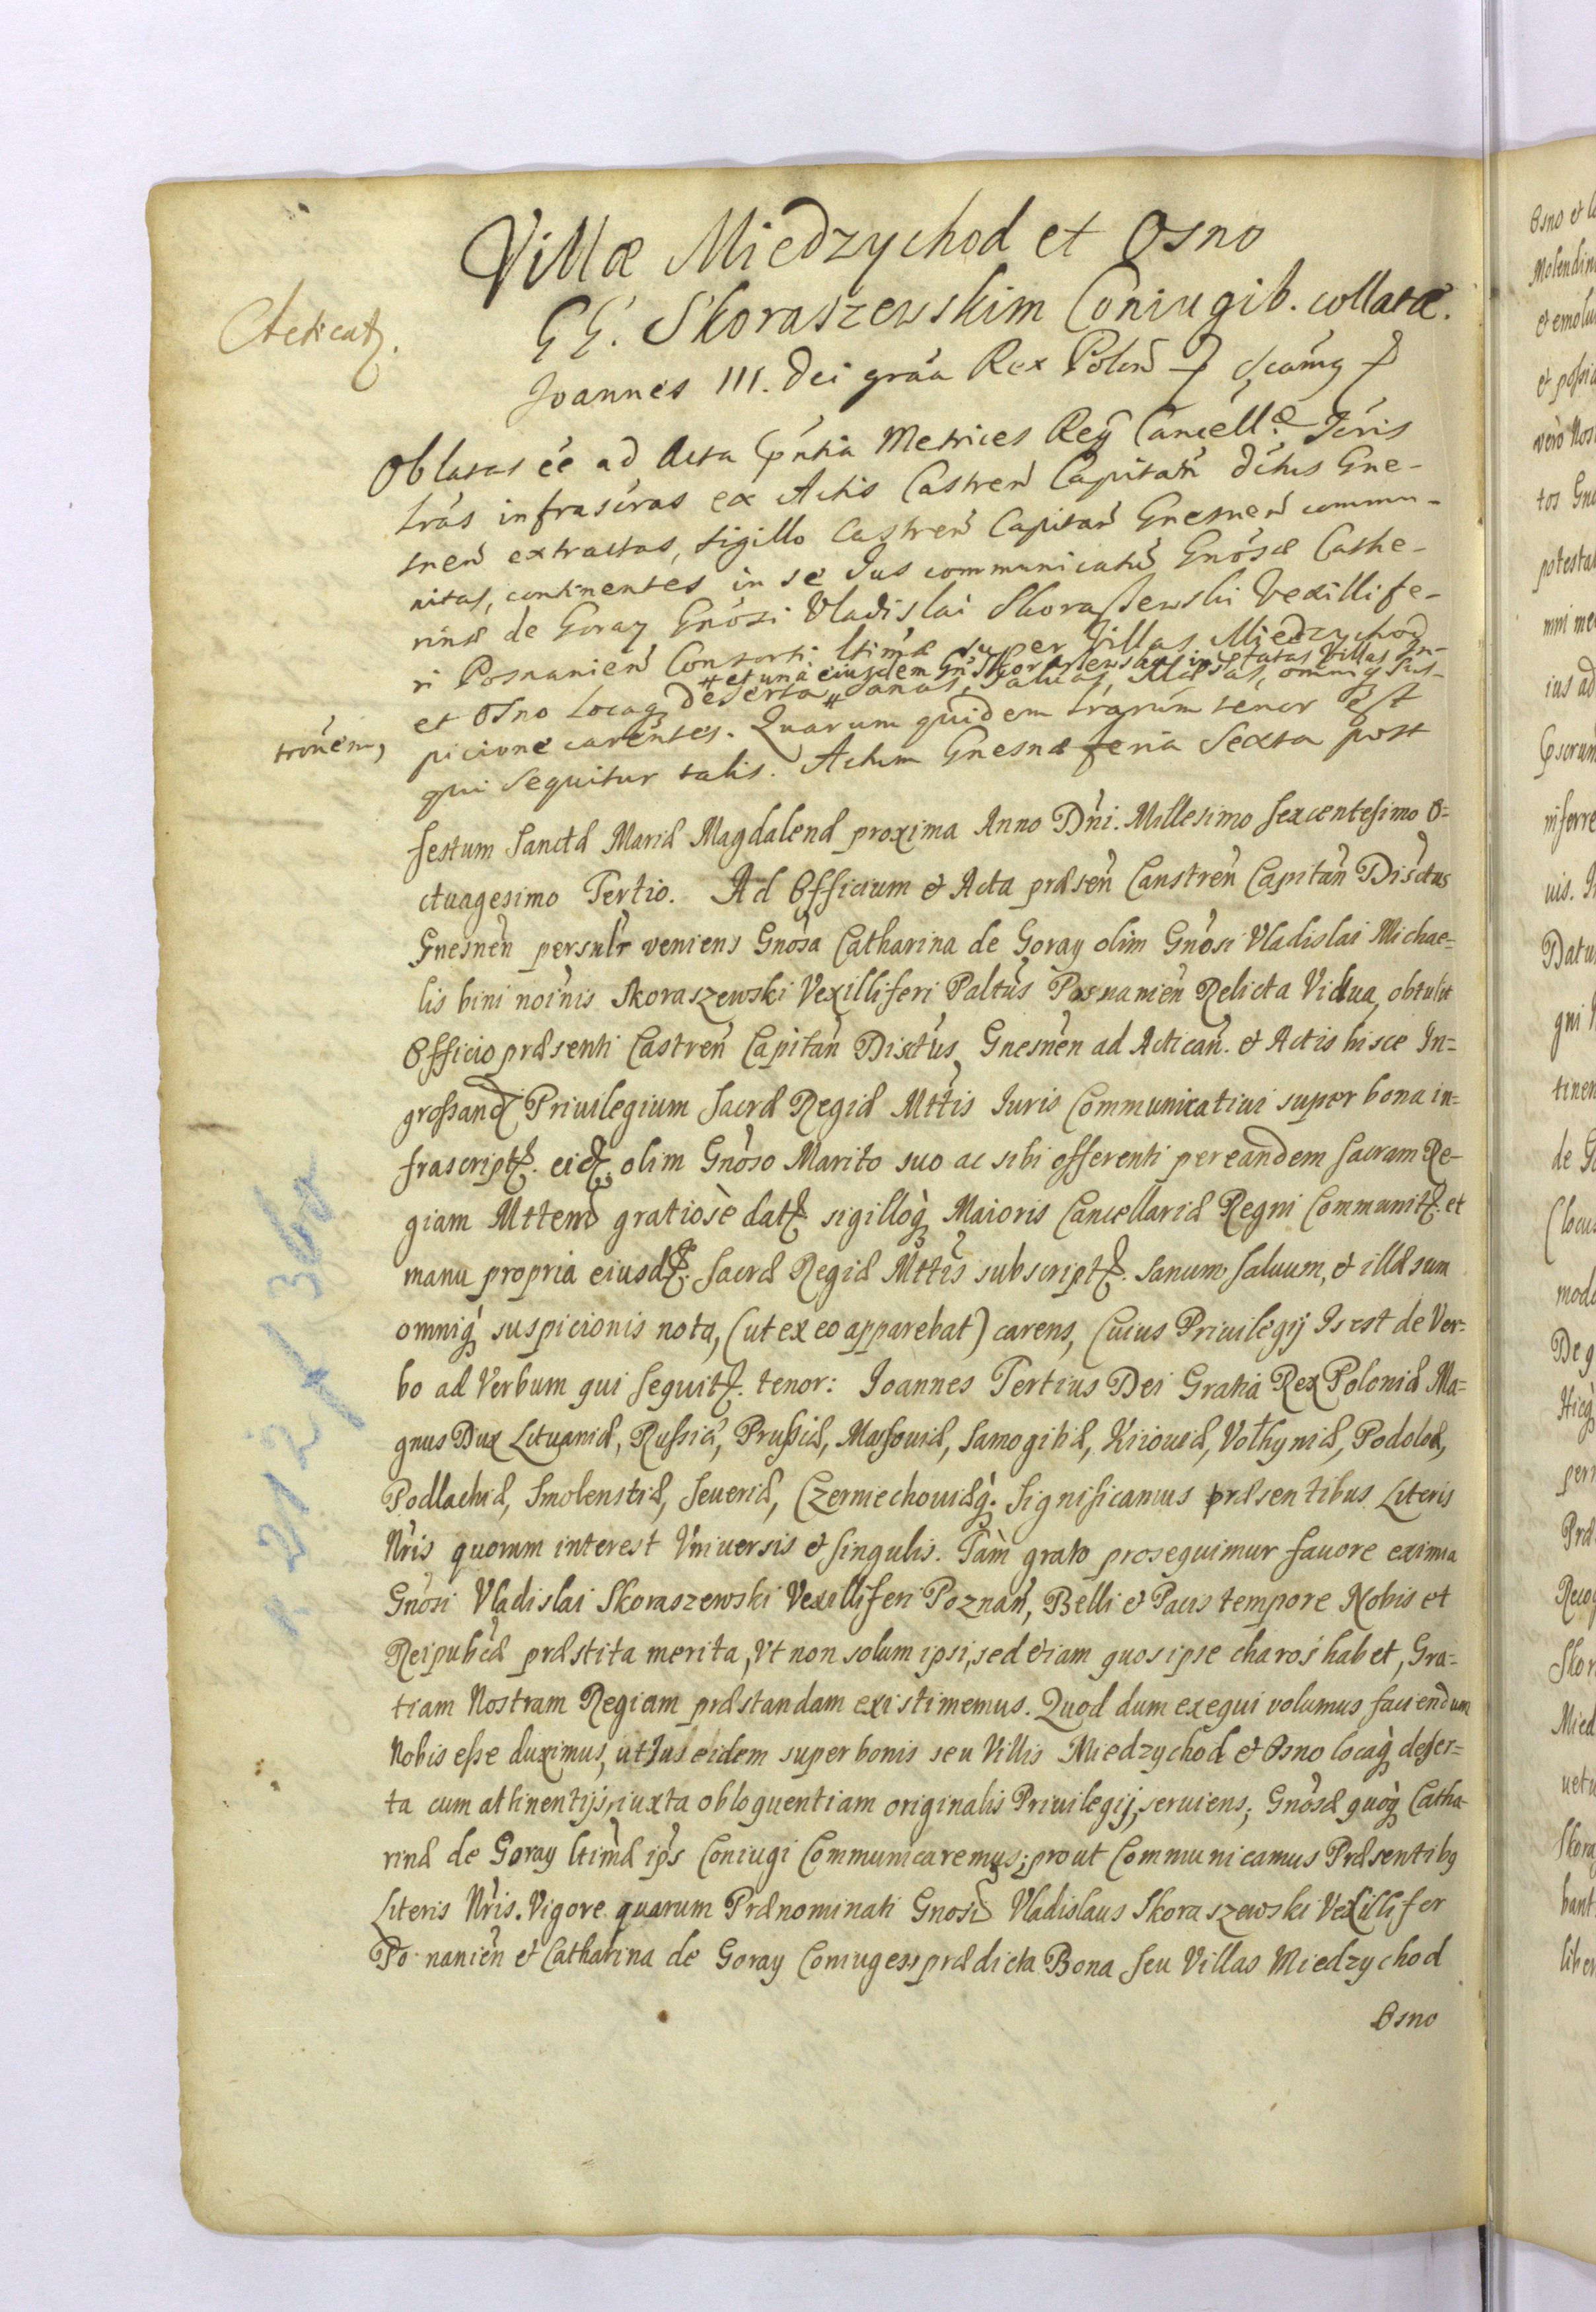 Villæ Miedzychod et Osno
GG. Skoraszewskim Coniugib. collatæ.
Acticat.
Joannes III. Dei grãa Rex Polon
Oblatas eé ad Acta Metrices Cancell Iuris
trás infrascras ex Actis Castren Capitan Gne-
snen extractas, sigillo Castren Capitan Gnesnen commu-
nitas, continentes in se Jus communicatiũ Gnosæ Cathe-
rinæ de Goray Gnosi Vladislai Skoraszewski Vexillife-
ri Posnanien Consorti ltimæ super Villas Miedzychod
et Osno Locaq deserta # sanas, saluas, illæsas, omniq sus-
# et unà eiusdem Gn Skoraszewska Villas In-
tronem,
picione carentes. Quarum quidem trarum tenor est
qui sequitur talis. Actum Gnesnæ feria Sexta post
festum Sanctæ Mariæ Magdalenæ proxima Anno Dñi. Millesimo sexcentesimo O=
ctuagesimo Tertio. Ad Officium et Acta præsen̉ Canstren̉ Capitan̉ Disctus
Gnesnen̉ persnlr veniens Gnosa Catharina de Goray olim Gnosi Vladislai Michae=
lis bini noinis Skoraszewski Vexilliferi Paltus Posnanien̉ Relicta Vidua, obtulit
Officio præsenti Castren̉ Capitan̉ Distus Gnesnen ad Actican. et Actis hisce In=
grossand Priuilegium Sacræ Regiæ Mttis Iuris Communicatiui super bona in=
frascript. eid. olim Gnoso Marito suo ac sibi offerenti per eandem Sacram Re-
giam Mttem gratiosè dat. sigilloq Maioris Cancellariæ Regni Communit. et
manu propria eiusd. Sacræ Regiæ Mttis subscript. sanum saluum, et illæsum
omniq suspicionis nota, (ut ex eo apparebat) carens, Cuius Priuilegij Is est de Ver=
bo ad Verbum qui sequit. tenor: Joannes Tertius Dei Gratia Rex Poloniæ Ma=
gnus Dux Lituaniæ, Russiæ, Prussiæ, Massouiæ, Samogitiæ, Kiiouiæ, Volhyniæ, Podoliæ,
Podlachiæ, Smolenstiæ, Seueriæ, Czerniechouiæq. Significamus præsentibus Literis
Nris quorum interest Vniuersis et singulis. Tàm grato prosequimur fauore eximia
Gnosi Vladislai Skoraszewski Vexilliferi Poznan̉, Belli et Pacis tempore Nobis et
Reipubcæ præstita merita, Vt non solum ipsi, sed etiam quos ipse charos habet, Gra=
tiam Nostram Regiam præstandam existimemus. Quod dum exequi volumus faciendum
Nobis esse duximus, ut Jus eidem super bonis seu Villis Miedzychod et Osno locaq deser=
ta cum attinentijs, iuxta obloquentiam originalis Priuilegij, seruiens, Gnosæ quoq Catha-
rinæ de Goray ltimæ ips Coniugi Communicaremus; prout Communicamus Præsentibq
Literis Nris. Vigore quarum Prænominati Gnosi Vladislaus Skoraszewski Vexillifer
Po nanien̉ et Catharina de Goray Coniuges prædicta Bona seu Villas Miedzychod
Osno